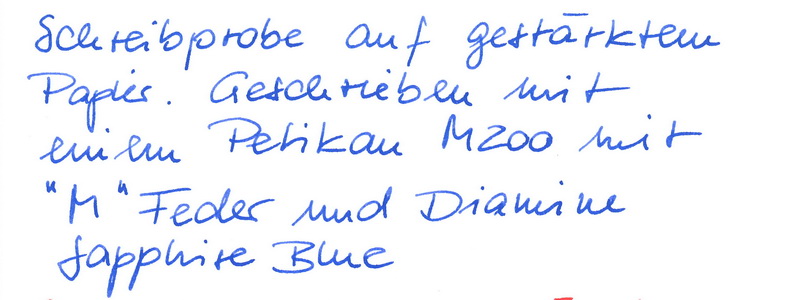 Schreibprobe auf gestärktem
Papier. Geschrieben mit
einem Pelikan M200 mit
"M" Feder und Diamine
Sapphire Blue